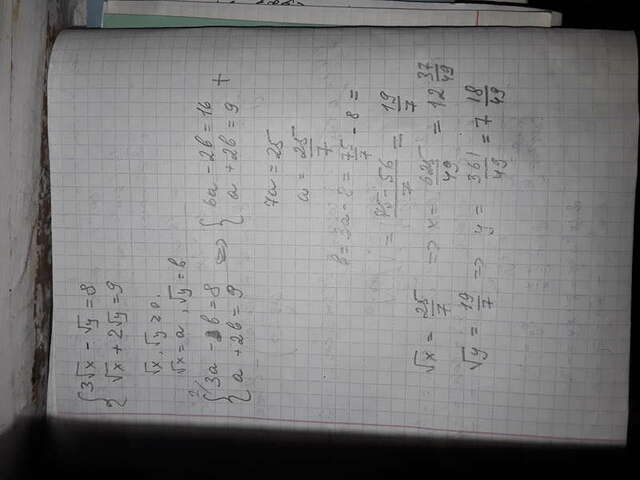 {3√x - √y = 8
{√x + 2√y = 9
√x, √y ≥ 0.
√x = a, √y = b
2/ {3a - b = 8
{a + 2b = 9 ⇔ {6a - 2b = 16
{a + 2b = 9 +
7a = 25
a = 25/7
b = 3a - 8 = 75/7 - 8 =
= 75 - 56/7 = 19/7
√x = 25/7 ⇒ x = 625/49 = 12 37/49
√y = 19/7 ⇒ y = 361/49 = 7 18/49